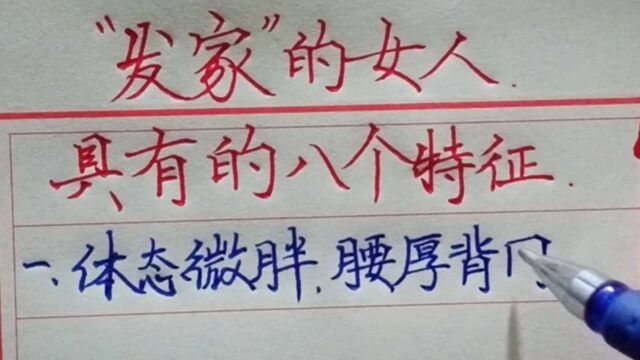 “发家”的女人.
具有的八个特征.
一、体态微胖，腰厚背